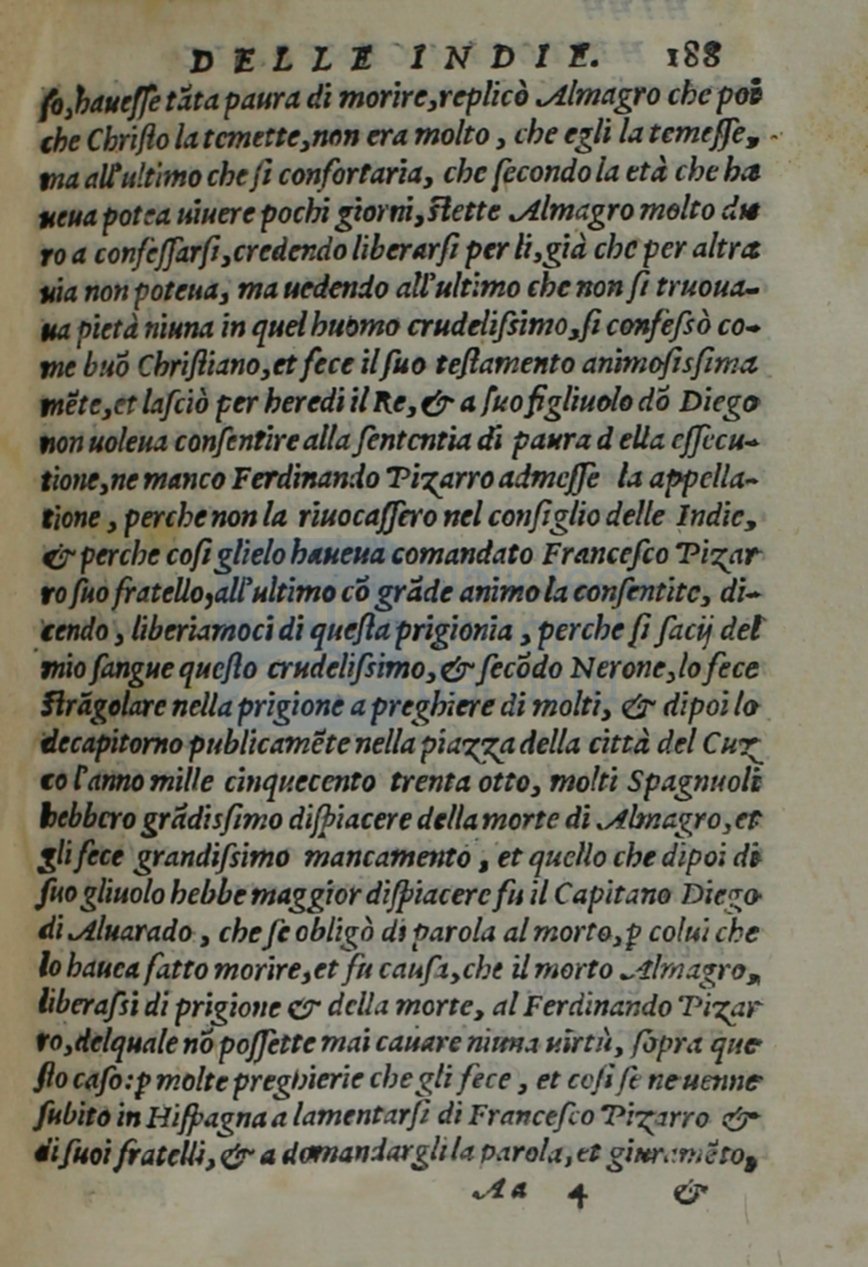 DELLE INDIE. 188
ſo, haueſſe tãta paura di morire, replicò Almagro che poi
che Chriſto la temette, non era molto, che egli la temeſſe,
ma all'ultimo che ſi confortaria, che ſecondo la età che ha
ueua potea uiuere pochi giorni, ſtette Almagro molto du
ro a confeſſarſi, credendo liberarſi per li, già che per altra
uia non poteua, ma uedendo all'ultimo che non ſi truoua-
ua pietà niuna in quel huomo crudeliſsimo, ſi confeſsò co-
me buõ Chriſtiano, et fece il ſuo teſtamento animoſisſima
mẽte, et laſciò per heredi il Re, & a ſuo figliuolo dõ Diego
non uoleua conſentire alla ſententia di paura d ella eſſecu-
tione, ne manco Ferdinando Pizarro admeſſe la appella-
tione, perche non la riuocaſſero nel conſiglio delle Indie,
& perche coſi glielo haueua comandato Franceſco Pizar
ro ſuo fratello, all'ultimo cõ grãde animo la conſentite, di-
cendo, liberiamoci di queſta prigionia, perche ſi ſacij del
mio ſangue queſto crudeliſsimo, & ſecõdo Nerone, lo fece
ſtrãgolare nella prigione a preghiere di molti, & dipoi lo
decapitorno publicamẽte nella piazza della città del Cuz
co l'anno mille cinquecento trenta otto, molti Spagnuoli
hebbero grãdisſimo diſpiacere della morte di Almagro, et
gli fece grandiſsimo mancamento, et quello che dipoi di
ſuo gliuolo hebbe maggior diſpiacere fu il Capitano Diego
di Aluarado, che ſe obligò di parola al morto, ꝑ colui che
lo hauea fatto morire, et fu cauſa, che il morto Almagro,
liberaſsi di prigione & della morte, al Ferdinando Pizar
ro, delquale nõ poſſette mai cauare niuna uirtù, ſopra que
ſto caſo: ꝑ molte preghierie che gli fece, et coſi ſe ne uenne
ſubito in Hiſpagna a lamentarſi di Franceſco Pizarro &
di ſuoi fratelli, & a domandargli la parola, et giuramẽto,
Aa 4 &